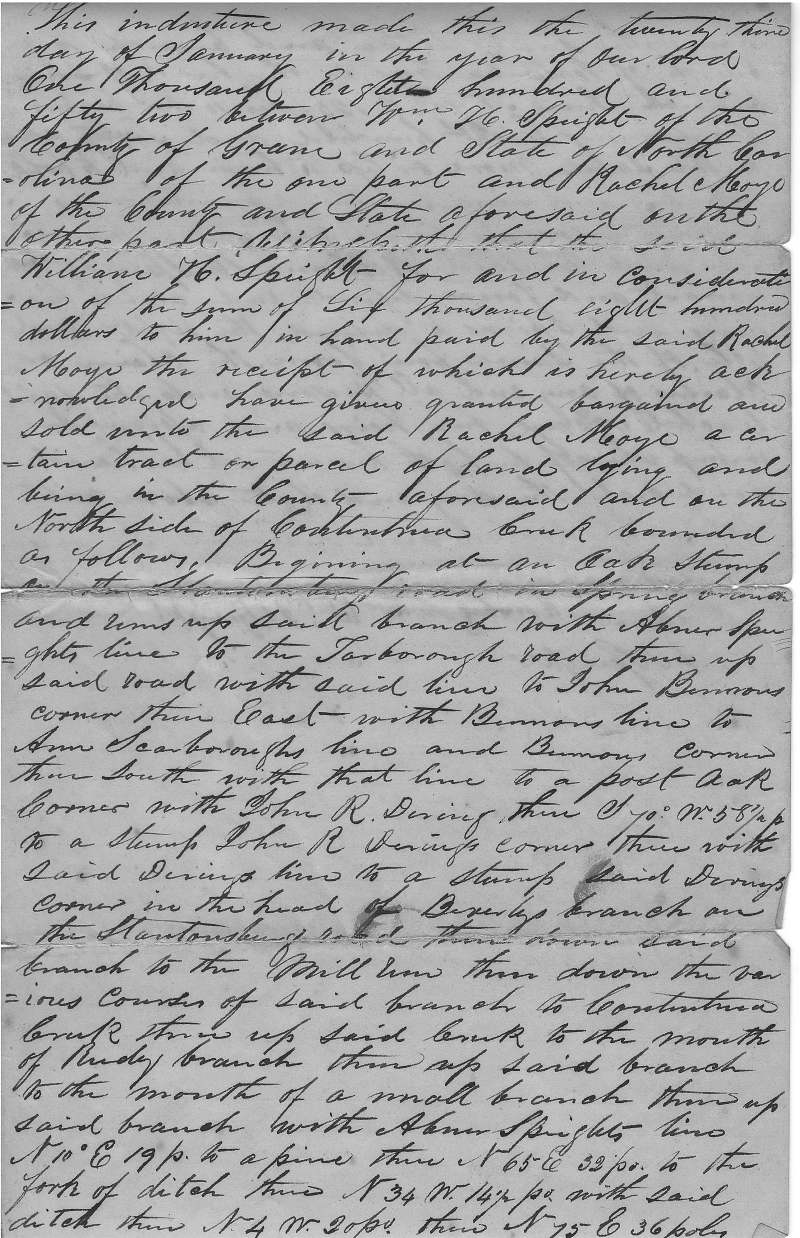 This indenture made this the twenty third
day of January in the year of our Lord
One Thousand Eight hundred and
fifty two between Wm. H. Speight of the
County of Green and State of North Car
=olina of the one part and Rachel Moye
of the County and State aforesaid on the
other part Witnesseth that the said
William H. Speight for and in considerati
=on of the sum of Six thousand eight hundred
dollars to him in hand paid by the said Rachel
Moye the receipt of which is hereby ack
=nowledged have given granted bargained and
sold unto the said Rachel Moye a cer
=tain tract or parcel of land lying and
being in the County aforesaid and on the
North side of Contentnea Creek bounded
as follows. Begining at an Oak Stump
on the Stantonsburg road in Spring branch
and runs up said branch with Abner Spei
=ghts line to the Tarborough road then up
said road with said line to John Bemons
corner then East with Bemons line to
Ann Scarboroughs line and Bemons corner
then South with that line to a post Oak
Corner with John R. Dering, then S 70° W. 58½ p
to a stump John R Derings corner then with
said Derings line to a stump said Derings
corner in the head of Beverlys branch on
the Stantonsburg road then down said
branch to the Mill run then down the var
=ious courses of said branch to Contentnea
Creek then up said Creek to the mouth
of Reedy branch then up said branch
to the mouth of a small branch then up
said branch with Abner Speights line
N 10° E 19 p. to a pine then N 65 E 32 po. to the
fork of ditch then N 34 W. 14½ po. with said
ditch then N. 4 W. 20 po. then N 75 E 36 poles